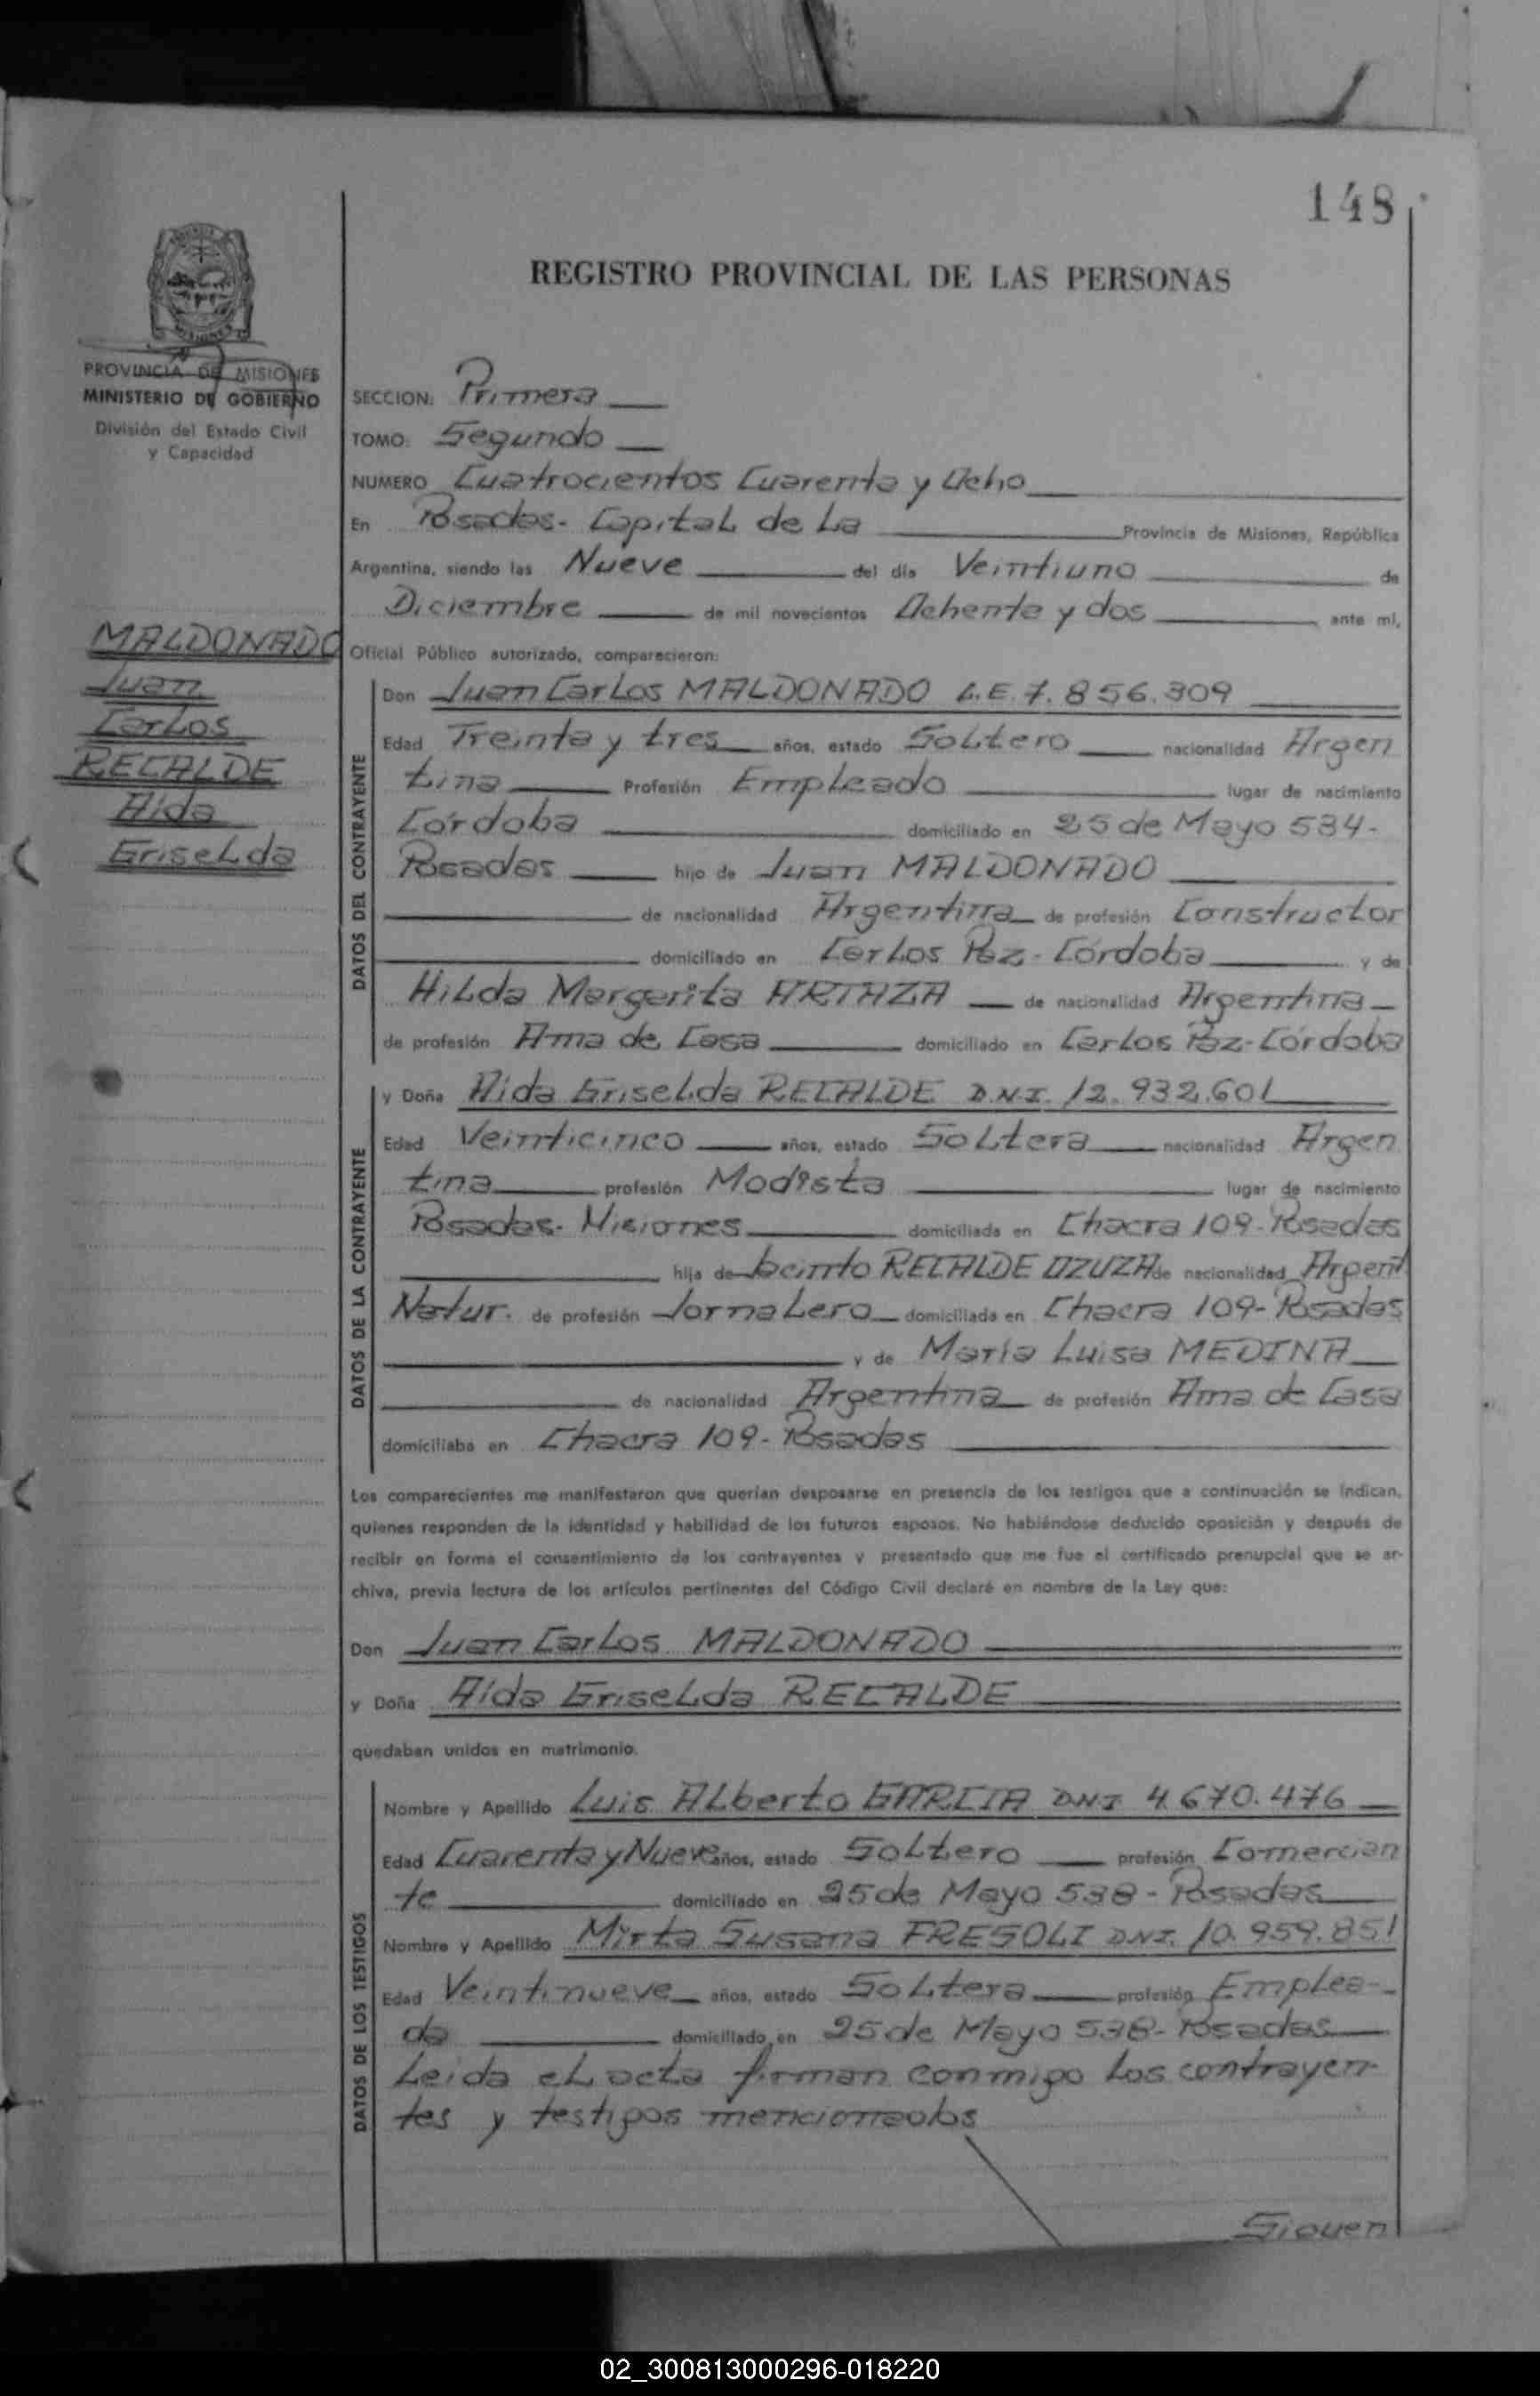 148
REGISTRO PROVINCIAL DE LAS PERSONAS
PROVINCIA DE MISIONES
MINISTERIO DE GOBIERNO
División del Estado Civil
y Capacidad
MALDONADO
Juan
Carlos
RECALDE
Aida
Griselda
SECCION: Primera
TOMO: Segundo
NUMERO Cuatrocientos Cuarenta y Ocho
En Posadas- Capital de La Provincia de Misiones, República
Argentina, siendo las Nueve del día Veintiuno de
Diciembre de mil novecientos Ochenta y dos ante mí,
Oficial Público autorizado, comparecieron:
DATOS DEL CONTRAYENTE
Don Juan Carlos MALDONADO L.E. 7.856.309
Edad Treinta y tres años, estado Soltero nacionalidad Argen
tina Profesión Empleado lugar de nacimiento
Córdoba domiciliado en 25 de Mayo 534-
Posadas hijo de Juan MALDONADO
de nacionalidad Argentina de profesión Constructor
domiciliado en Carlos Paz- Córdoba y de
Hilda Margarita ARTAZA de nacionalidad Argentina
de profesión Ama de Casa domiciliado en Carlos Paz-Córdoba
DATOS DE LA CONTRAYENTE
y Doña Aida Griselda RECALDE D.N.I. 12.932.601
Edad Veinticinco años, estado Soltera nacionalidad Argen
tina profesión Modista lugar de nacimiento
Posadas- Misiones domiciliada en Chacra 109-Posadas
hija de Jacinto RECALDE OZUZA de nacionalidad Argent
Natur. de profesión Jornalero domiciliada en Chacra 109-Posadas
y de María Luisa MEDINA
de nacionalidad Argentina de profesión Ama de Casa
domiciliaba en Chacra 109- Posadas
Los comparecientes me manifestaron que querían desposarse en presencia de los testigos que a continuación se indican,
quienes responden de la identidad y habilidad de los futuros esposos. No habiéndose deducido oposición y después de
recibir en forma el consentimiento de los contrayentes y presentado que me fue el certificado prenupcial que se ar-
chiva, previa lectura de los artículos pertinentes del Código Civil declaré en nombre de la Ley que:
Don Juan Carlos MALDONADO
y Doña Aida Griselda RECALDE
quedaban unidos en matrimonio.
DATOS DE LOS TESTIGOS
Nombre y Apellido Luis Alberto GARCIA DNI 4.670.476
Edad Cuarenta y Nueve años, estado Soltero profesión Comercian
te domiciliado en 25 de Mayo 538- Posadas
Nombre y Apellido Mirta Susana FRESOLI DNI. 10.959.851
Edad Veintinueve años, estado Soltera profesión Emplea-
da domiciliado en 25 de Mayo 538- Posadas
Leida el acta firman conmigo los contrayen-
tes y testigos mencionados
Siguen
02_300813000296-018220